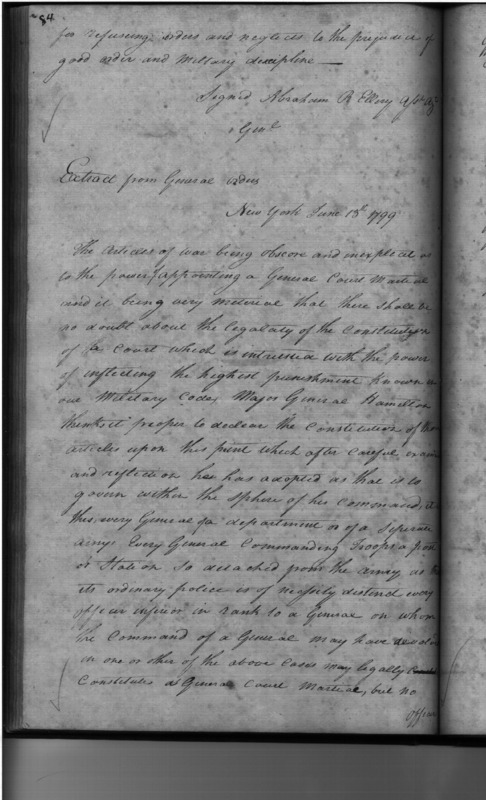 84
for refusing orders and neglects to the prejudice of
good order and Military decipline —
Signed Abraham R Ellery Asst Ag
& Genl
Extract from General orders
New York June 13t 1799
The Articles of war being obscore and inexplicit as
to the power of appointing a General Court Martial
and it being very meterial that there shall be
no doubt about the legality of the Constitution
of a Court which is intrusted with the power
of inflicting the highest punishment known in
our Military Code, Major General Hamilton
thinks it proper to declear the Constitution of the
articles upon this point which after careful
and reflection he has adopted as that is to
govern within the Sphere of his Command, it
this, every General of a department or of a Seperate
army Every General Commanding Troops a post
or Station so detached from the army, as
its ordinary police is of nessesity distinct every
officer inferior in rank to a General on whom
the Command of a General may have devolved
in one or other of the above Cases may legally
Constitute a General Court Martial, but no
officer